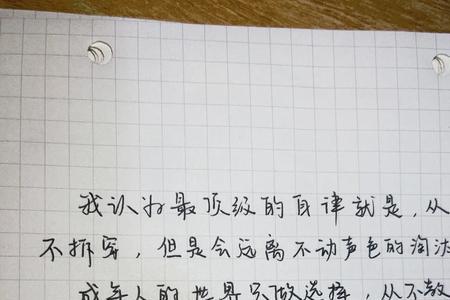 我认为最顶级的自律就是，从
不拆穿，但是会远离不动声色的淘汰
成年人的世界只做选择，从不教